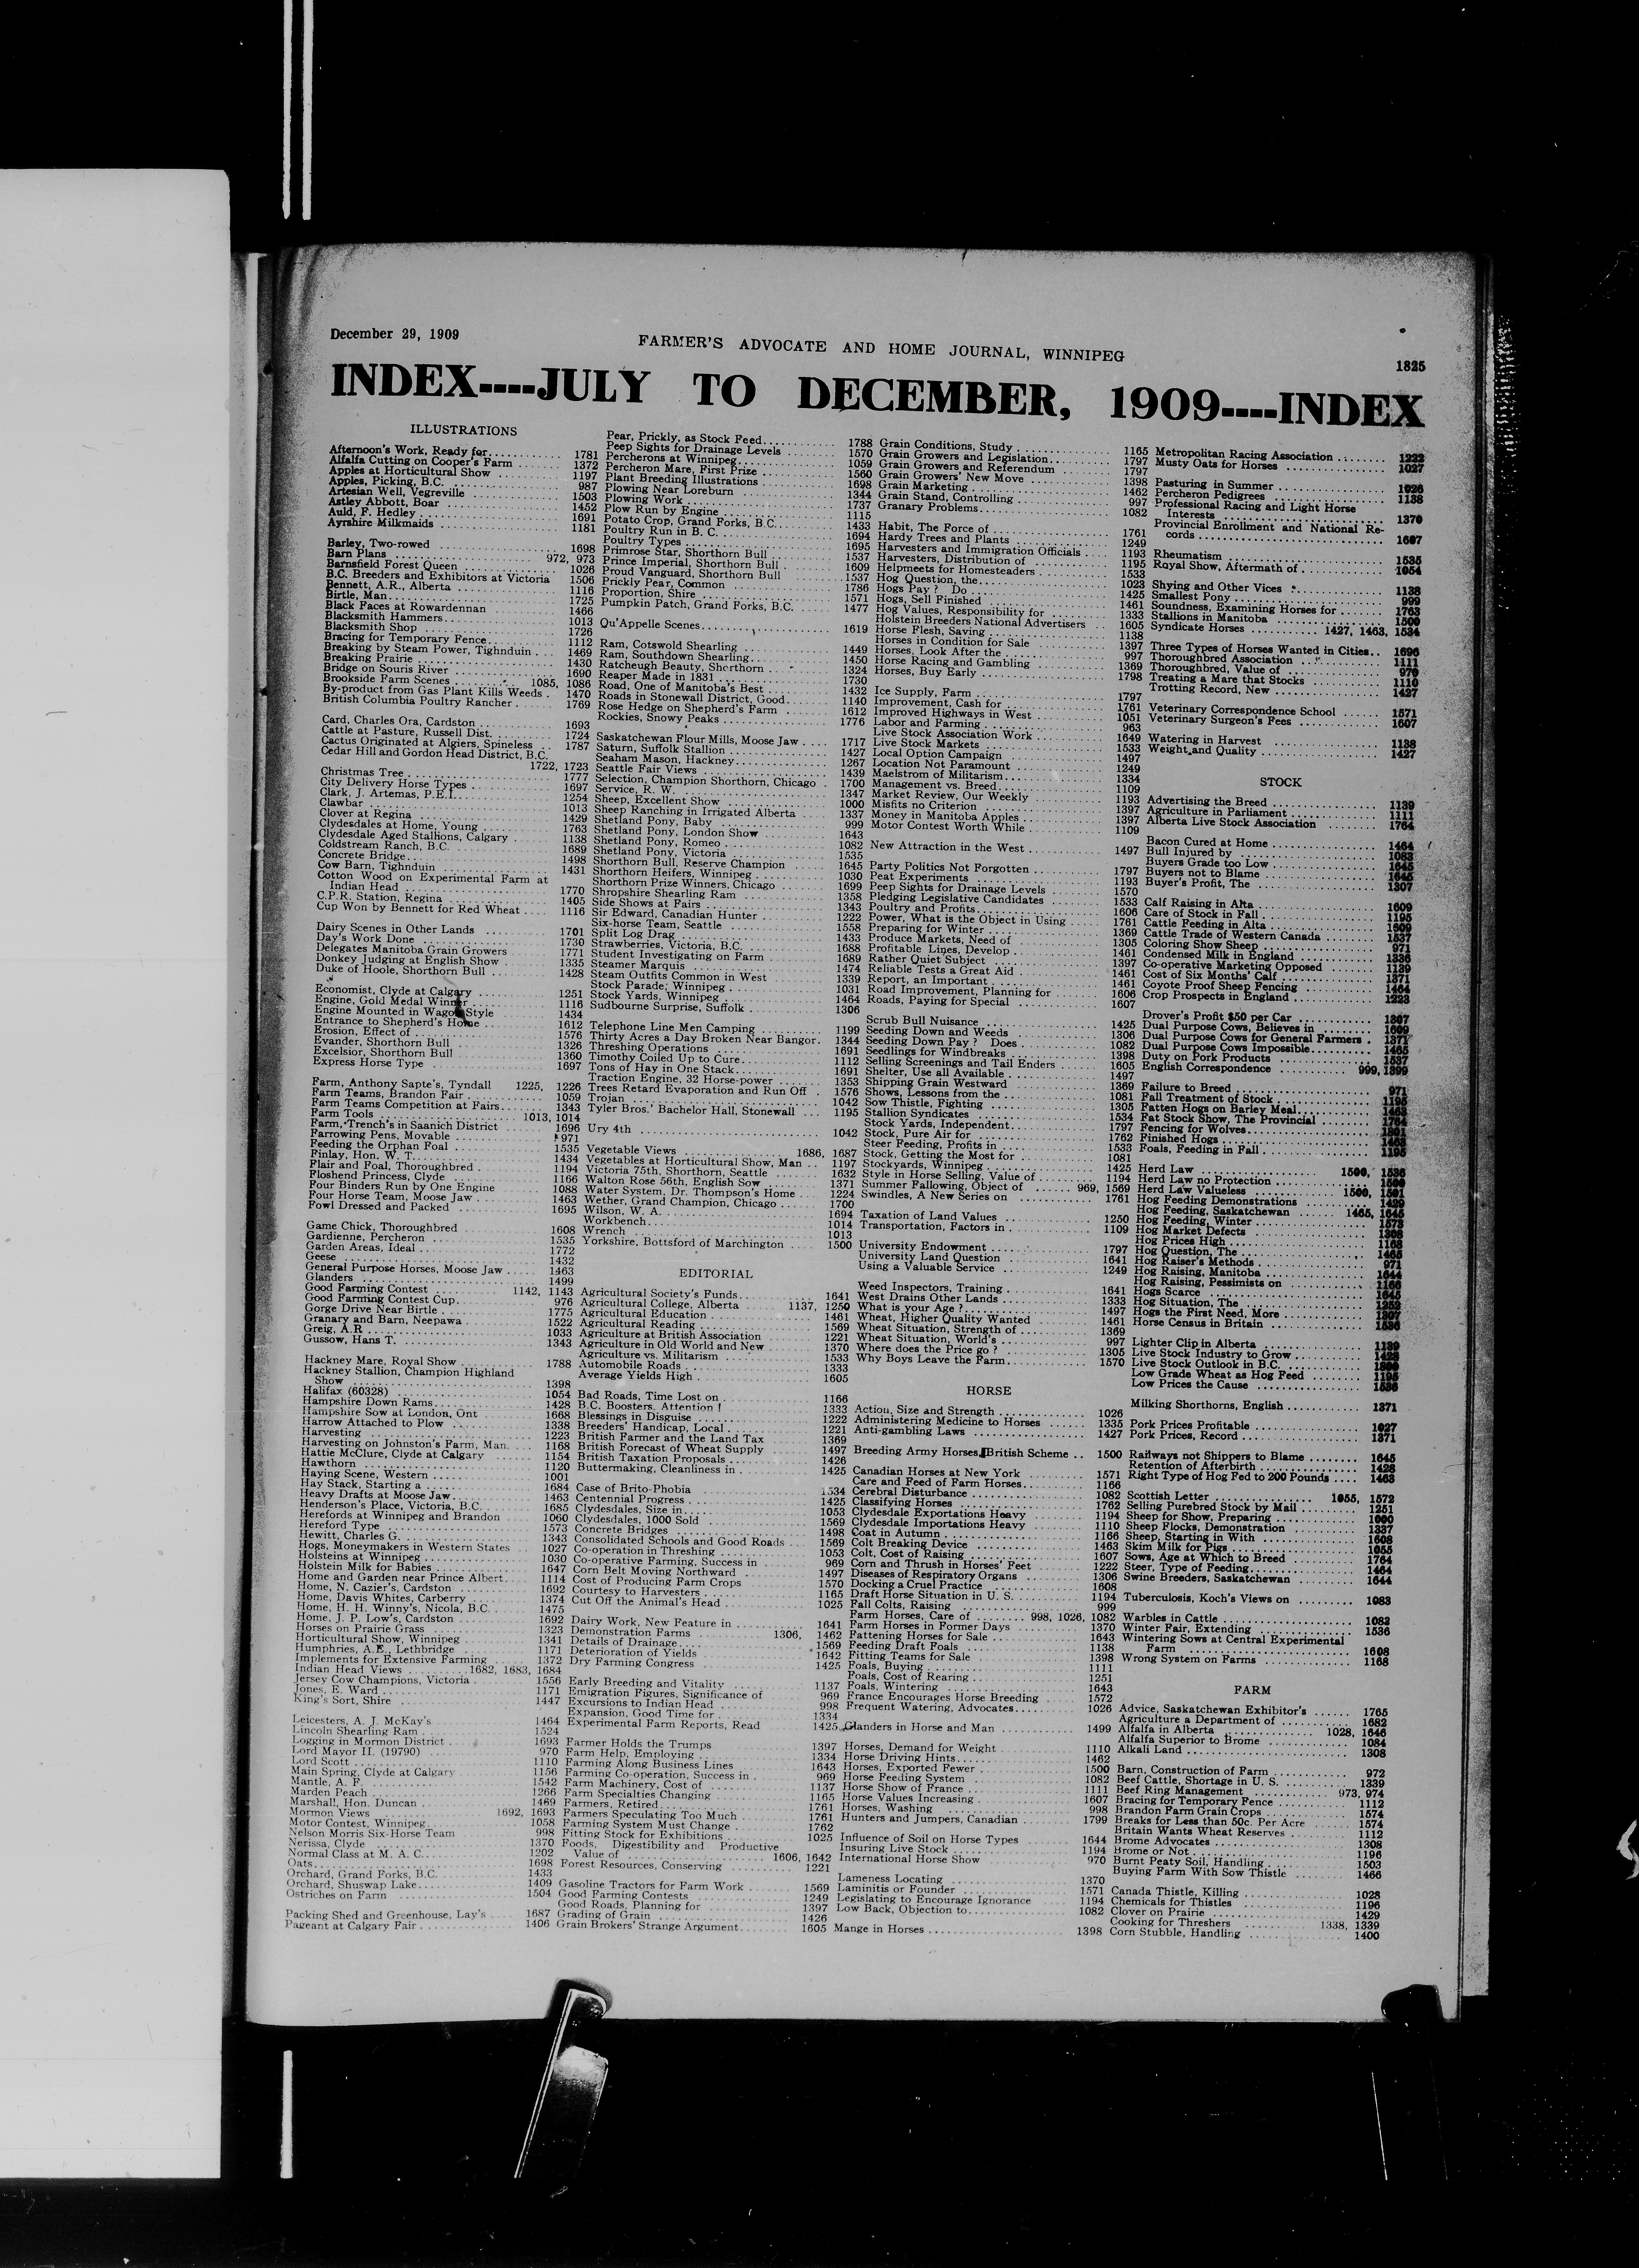 December 29, 1909
FARMER'S ADVOCATE AND HOME JOURNAL, WINNIPEG
1825
INDEX----JULY TO DECEMBER, 1909----INDEX
ILLUSTRATIONS
Afternoon's Work, Ready for 1781
Alfalfa Cutting on Cooper's Farm 1372
Apples at Horticultural Show 1197
Apples, Picking, B.C. 987
Artesian Well, Vegreville 1503
Astley Abbott, Boar 1452
Auld, F. Hedley 1691
Ayrshire Milkmaids 1181
Barley, Two-rowed 1698
Barn Plans 972, 973
Barnsfield Forest Queen 1026
B.C. Breeders and Exhibitors at Victoria 1506
Bennett, A.R., Alberta 1116
Birtle, Man. 1725
Black Faces at Rowardennan 1466
Blacksmith Hammers 1013
Blacksmith Shop 1726
Bracing for Temporary Fence 1112
Breaking by Steam Power, Tighnduin 1469
Breaking Prairie 1430
Bridge on Souris River 1690
Brookside Farm Scenes 1085, 1086
By-product from Gas Plant Kills Weeds 1470
British Columbia Poultry Rancher 1769
Card, Charles Ora, Cardston 1693
Cattle at Pasture, Russell Dist. 1724
Cactus Originated at Algiers, Spineless 1787
Cedar Hill and Gordon Head District, B.C.
1722, 1723
Christmas Tree 1777
City Delivery Horse Types 1697
Clark, J. Artemas, P.E.I. 1254
Clawbar 1013
Clover at Regina 1429
Clydesdales at Home, Young 1763
Clydesdale Aged Stallions, Calgary 1138
Coldstream Ranch, B.C. 1689
Concrete Bridge 1498
Cow Barn, Tighnduin 1431
Cotton Wood on Experimental Farm at
Indian Head 1770
C.P.R. Station, Regina 1405
Cup Won by Bennett for Red Wheat 1116
Dairy Scenes in Other Lands 1701
Day's Work Done 1730
Delegates Manitoba Grain Growers 1771
Donkey Judging at English Show 1335
Duke of Hoole, Shorthorn Bull 1428
Economist, Clyde at Calgary 1251
Engine, Gold Medal Winner 1116
Engine Mounted in Wagon Style 1434
Entrance to Shepherd's Home 1612
Erosion, Effect of 1576
Evander, Shorthorn Bull 1326
Excelsior, Shorthorn Bull 1360
Express Horse Type 1697
Farm, Anthony Sapte's, Tyndall 1225, 1226
Farm Teams, Brandon Fair 1059
Farm Teams Competition at Fairs 1343
Farm Tools 1013, 1014
Farm, Trench's in Saanich District 1696
Farrowing Pens, Movable 971
Feeding the Orphan Foal 1535
Finlay, Hon. W. T. 1434
Flair and Foal, Thoroughbred 1194
Floshend Princess, Clyde 1166
Four Binders Run by One Engine 1088
Four Horse Team, Moose Jaw 1463
Fowl Dressed and Packed 1695
Game Chick, Thoroughbred 1608
Gardienne, Percheron 1535
Garden Areas, Ideal 1772
Geese 1432
General Purpose Horses, Moose Jaw 1463
Glanders 1499
Good Farming Contest 1142, 1143
Good Farming Contest Cup 976
Gorge Drive Near Birtle 1775
Granary and Barn, Neepawa 1522
Greig, A.R. 1033
Gussow, Hans T. 1343
Hackney Mare, Royal Show 1788
Hackney Stallion, Champion Highland
Show 1398
Halifax (60328) 1054
Hampshire Down Rams 1428
Hampshire Sow at London, Ont 1668
Harrow Attached to Plow 1338
Harvesting 1223
Harvesting on Johnston's Farm, Man. 1168
Hattie McClure, Clyde at Calgary 1154
Hawthorn 1120
Haying Scene, Western 1001
Hay Stack, Starting a 1684
Heavy Drafts at Moose Jaw 1463
Henderson's Place, Victoria, B.C. 1685
Herefords at Winnipeg and Brandon 1060
Hereford Type 1573
Hewitt, Charles G. 1343
Hogs, Moneymakers in Western States 1027
Holsteins at Winnipeg 1030
Holstein Milk for Babies 1647
Home and Garden near Prince Albert 1114
Home, N. Cazier's, Cardston 1692
Home, Davis Whites, Carberry 1374
Home, H. H. Winny's, Nicola, B.C. 1475
Home, J. P. Low's, Cardston 1692
Horses on Prairie Grass 1323
Horticultural Show, Winnipeg 1341
Humphries, A.E., Lethbridge 1171
Implements for Extensive Farming 1372
Indian Head Views 1682, 1683, 1684
Jersey Cow Champions, Victoria 1556
Jones, E. Ward 1171
King's Sort, Shire 1447
Leicesters, A. J. McKay's 1464
Lincoln Shearling Ram 1524
Logging in Mormon District 1693
Lord Mayor II. (19790) 970
Lord Scott 1110
Main Spring, Clyde at Calgary 1156
Mantle, A. F. 1542
Marden Peach 1266
Marshall, Hon. Duncan 1469
Mormon Views 1692, 1693
Motor Contest, Winnipeg 1058
Nelson Morris Six-Horse Team 998
Nerissa, Clyde 1370
Normal Class at M. A. C. 1202
Oats 1698
Orchard, Grand Forks, B.C. 1433
Orchard, Shuswap Lake 1409
Ostriches on Farm 1504
Packing Shed and Greenhouse, Lay's 1687
Pageant at Calgary Fair 1406
Pear, Prickly, as Stock Feed 1788
Peep Sights for Drainage Levels 1570
Percherons at Winnipeg 1059
Percheron Mare, First Prize 1560
Plant Breeding Illustrations 1698
Plowing Near Loreburn 1344
Plowing Work 1737
Plow Run by Engine 1115
Potato Crop, Grand Forks, B.C. 1433
Poultry Run in B. C. 1694
Poultry Types 1695
Primrose Star, Shorthorn Bull 1537
Prince Imperial, Shorthorn Bull 1609
Proud Vanguard, Shorthorn Bull 1537
Prickly Pear, Common 1786
Proportion, Shire 1571
Pumpkin Patch, Grand Forks, B.C. 1477
Qu'Appelle Scenes 1619
Ram, Cotswold Shearling 1449
Ram, Southdown Shearling 1450
Ratcheugh Beauty, Shorthorn 1324
Reaper Made in 1831 1730
Road, One of Manitoba's Best 1432
Roads in Stonewall District, Good 1140
Rose Hedge on Shepherd's Farm 1612
Rockies, Snowy Peaks 1776
Saskatchewan Flour Mills, Moose Jaw 1717
Saturn, Suffolk Stallion 1427
Seaham Mason, Hackney 1267
Seattle Fair Views 1439
Selection, Champion Shorthorn, Chicago 1700
Service, R. W. 1347
Sheep, Excellent Show 1000
Sheep Ranching in Irrigated Alberta 1337
Shetland Pony, Baby 999
Shetland Pony, London Show 1643
Shetland Pony, Romeo 1082
Shetland Pony, Victoria 1535
Shorthorn Bull, Reserve Champion 1645
Shorthorn Heifers, Winnipeg 1030
Shorthorn Prize Winners, Chicago 1699
Shropshire Shearling Ram 1358
Side Shows at Fairs 1343
Sir Edward, Canadian Hunter 1222
Six-horse Team, Seattle 1558
Split Log Drag 1433
Strawberries, Victoria, B.C. 1688
Student Investigating on Farm 1689
Steamer Marquis 1474
Steam Outfits Common in West 1339
Stock Parade, Winnipeg 1031
Stock Yards, Winnipeg 1464
Sudbourne Surprise, Suffolk 1306
Telephone Line Men Camping 1199
Thirty Acres a Day Broken Near Bangor 1344
Threshing Operations 1691
Timothy Coiled Up to Cure 1112
Tons of Hay in One Stack 1691
Traction Engine, 32 Horse-power 1353
Trees Retard Evaporation and Run Off 1576
Trojan 1042
Tyler Bros.' Bachelor Hall, Stonewall 1195
Ury 4th 1042
Vegetable Views 1686, 1687
Vegetables at Horticultural Show, Man 1197
Victoria 75th, Shorthorn, Seattle 1632
Walton Rose 56th, English Sow 1371
Water System, Dr. Thompson's Home 1224
Wether, Grand Champion, Chicago 1700
Wilson, W. A. 1694
Workbench 1014
Wrench 1013
Yorkshire, Bottsford of Marchington 1500
EDITORIAL
Agricultural Society's Funds 1641
Agricultural College, Alberta 1137, 1250
Agricultural Education 1461
Agricultural Reading 1569
Agriculture at British Association 1221
Agriculture in Old World and New 1370
Agriculture vs. Militarism 1533
Automobile Roads 1333
Average Yields High 1605
Bad Roads, Time Lost on 1166
B.C. Boosters, Attention! 1333
Blessings in Disguise 1222
Breeders' Handicap, Local 1221
British Farmer and the Land Tax 1369
British Forecast of Wheat Supply 1497
British Taxation Proposals 1426
Buttermaking, Cleanliness in 1425
Case of Brito-Phobia 1534
Centennial Progress 1425
Clydesdales, Size in 1053
Clydesdales, 1000 Sold 1569
Concrete Bridges 1498
Consolidated Schools and Good Roads 1569
Co-operation in Threshing 1053
Co-operative Farming, Success in 969
Corn Belt Moving Northward 1497
Cost of Producing Farm Crops 1570
Courtesy to Harvesters 1165
Cut Off the Animal's Head 1025
Dairy Work, New Feature in 1641
Demonstration Farms 1306, 1462
Details of Drainage 1569
Deterioration of Yields 1642
Dry Farming Congress 1425
Early Breeding and Vitality 1137
Emigration Figures, Significance of 969
Excursions to Indian Head 998
Expansion, Good Time for 1334
Experimental Farm Reports, Read 1425
Farmer Holds the Trumps 1397
Farm Help, Employing 1334
Farming Along Business Lines 1643
Farming Co-operation, Success in 969
Farm Machinery, Cost of 1137
Farm Specialties Changing 1165
Farmers, Retired 1761
Farmers Speculating Too Much 1761
Farming System Must Change 1762
Fitting Stock for Exhibitions 1025
Foods, Digestibility and Productive
Value of 1606, 1642
Forest Resources, Conserving 1221
Gasoline Tractors for Farm Work 1569
Good Farming Contests 1249
Good Roads, Planning for 1397
Grading of Grain 1426
Grain Brokers' Strange Argument 1605
Grain Conditions, Study 1165
Grain Growers and Legislation 1797
Grain Growers and Referendum 1797
Grain Growers' New Move 1398
Grain Marketing 1462
Grain Stand, Controlling 997
Granary Problems 1082
Habit, The Force of 1761
Hardy Trees and Plants 1249
Harvesters and Immigration Officials 1193
Harvesters, Distribution of 1195
Helpmeets for Homesteaders 1533
Hog Question, the 1023
Hogs Pay? Do 1425
Hogs, Sell Finished 1461
Hog Values, Responsibility for 1333
Holstein Breeders National Advertisers 1605
Horse Flesh, Saving 1138
Horses in Condition for Sale 1397
Horses, Look After the 997
Horse Racing and Gambling 1369
Horses, Buy Early 1798
Ice Supply, Farm 1797
Improvement, Cash for 1761
Improved Highways in West 1051
Labor and Farming 963
Live Stock Association Work 1649
Live Stock Markets 1533
Local Option Campaign 1497
Location Not Paramount 1249
Maelstrom of Militarism 1334
Management vs. Breed 1109
Market Review, Our Weekly 1193
Misfits no Criterion 1397
Money in Manitoba Apples 1397
Motor Contest Worth While 1109
New Attraction in the West 1497
Party Politics Not Forgotten 1797
Peat Experiments 1193
Peep Sights for Drainage Levels 1570
Pledging Legislative Candidates 1533
Poultry and Profits 1606
Power, What is the Object in Using 1761
Preparing for Winter 1369
Produce Markets, Need of 1305
Profitable Lines, Develop 1461
Rather Quiet Subject 1397
Reliable Tests a Great Aid 1461
Report, an Important 1461
Road Improvement, Planning for 1606
Roads, Paying for Special 1607
Scrub Bull Nuisance 1425
Seeding Down and Weeds 1306
Seeding Down Pay? Does 1082
Seedlings for Windbreaks 1398
Selling Screenings and Tail Enders 1605
Shelter, Use all Available 1497
Shipping Grain Westward 1369
Shows, Lessons from the 1081
Sow Thistle, Fighting 1305
Stallion Syndicates 1534
Stock Yards, Independent 1797
Stock, Pure Air for 1762
Steer Feeding, Profits in 1533
Stock, Getting the Most for 1081
Stockyards, Winnipeg 1425
Style in Horse Selling, Value of 1194
Summer Fallowing, Object of 969, 1569
Swindles, A New Series on 1761
Taxation of Land Values 1250
Transportation, Factors in 1109
University Endowment 1797
University Land Question 1641
Using a Valuable Service 1249
Weed Inspectors, Training 1641
West Drains Other Lands 1333
What is your Age? 1497
Wheat, Higher Quality Wanted 1461
Wheat Situation, Strength of 1369
Wheat Situation, World's 997
Where does the Price go? 1305
Why Boys Leave the Farm 1570
HORSE
Action, Size and Strength 1026
Administering Medicine to Horses 1335
Anti-gambling Laws 1427
Breeding Army Horses, British Scheme 1500
Canadian Horses at New York 1571
Care and Feed of Farm Horses 1166
Cerebral Disturbance 1082
Classifying Horses 1762
Clydesdale Exportations Heavy 1194
Clydesdale Importations Heavy 1110
Coat in Autumn 1166
Colt Breaking Device 1463
Colt, Cost of Raising 1607
Corn and Thrush in Horses' Feet 1222
Diseases of Respiratory Organs 1306
Docking a Cruel Practice 1608
Draft Horse Situation in U. S. 1194
Fall Colts, Raising 999
Farm Horses, Care of 998, 1026, 1082
Farm Horses in Former Days 1370
Fattening Horses for Sale 1643
Feeding Draft Foals 1138
Fitting Teams for Sale 1398
Foals, Buying 1111
Foals, Cost of Rearing 1251
Foals, Wintering 1643
France Encourages Horse Breeding 1572
Frequent Watering, Advocates 1026
Glanders in Horse and Man 1499
Horses, Demand for Weight 1110
Horse Driving Hints 1462
Horses, Exported Fewer 1500
Horse Feeding System 1082
Horse Show of France 1111
Horse Values Increasing 1607
Horses, Washing 998
Hunters and Jumpers, Canadian 1799
Influence of Soil on Horse Types 1644
Insuring Live Stock 1194
International Horse Show 970
Lameness Locating 1370
Laminitis or Founder 1571
Legislating to Encourage Ignorance 1194
Low Back, Objection to 1082
Mange in Horses 1398
Metropolitan Racing Association 1222
Musty Oats for Horses 1027
Pasturing in Summer 1026
Percheron Pedigrees 1138
Professional Racing and Light Horse
Interests 1370
Provincial Enrollment and National Re-
cords 1607
Rheumatism 1535
Royal Show, Aftermath of 1054
Shying and Other Vices 1138
Smallest Pony 999
Soundness, Examining Horses for 1763
Stallions in Manitoba 1500
Syndicate Horses 1427, 1463, 1534
Three Types of Horses Wanted in Cities 1696
Thoroughbred Association 1111
Thoroughbred, Value of 970
Treating a Mare that Stocks 1110
Trotting Record, New 1427
Veterinary Correspondence School 1571
Veterinary Surgeon's Fees 1607
Watering in Harvest 1138
Weight and Quality 1427
STOCK
Advertising the Breed 1139
Agriculture in Parliament 1111
Alberta Live Stock Association 1764
Bacon Cured at Home 1464
Bull Injured by 1083
Buyers Grade too Low 1645
Buyers not to Blame 1645
Buyer's Profit, The 1307
Calf Raising in Alta 1609
Care of Stock in Fall 1195
Cattle Feeding in Alta 1609
Cattle Trade of Western Canada 1537
Coloring Show Sheep 971
Condensed Milk in England 1336
Co-operative Marketing Opposed 1139
Cost of Six Months' Calf 1371
Coyote Proof Sheep Fencing 1464
Crop Prospects in England 1223
Drover's Profit $50 per Car 1307
Dual Purpose Cows, Believes in 1609
Dual Purpose Cows for General Farmers 1371
Dual Purpose Cows Impossible 1465
Duty on Pork Products 1537
English Correspondence 999, 1399
Failure to Breed 971
Fall Treatment of Stock 1195
Fatten Hogs on Barley Meal 1463
Fat Stock Show, The Provincial 1764
Fencing for Wolves
Finished Hogs 1463
Foals, Feeding in Fall 1195
Herd Law 1500, 1536
Herd Law no Protection 1500
Herd Law Valueless 1500, 1501
Hog Feeding Demonstrations 1429
Hog Feeding, Saskatchewan 1465, 1645
Hog Feeding, Winter 1573
Hog Market Defects 1308
Hog Prices High 1168
Hog Question, The 1465
Hog Raiser's Methods 971
Hog Raising, Manitoba 1644
Hog Raising, Pessimists on 1166
Hogs Scarce 1645
Hog Situation, The 1252
Hogs the First Need, More 1307
Horse Census in Britain 1536
Lighter Clip in Alberta 1139
Live Stock Industry to Grow 1428
Live Stock Outlook in B.C.
Low Grade Wheat as Hog Feed 1195
Low Prices the Cause 1536
Milking Shorthorns, English 1371
Pork Prices Profitable 1027
Pork Prices, Record 1371
Railways not Shippers to Blame 1645
Retention of Afterbirth 1428
Right Type of Hog Fed to 200 Pounds 1463
Scottish Letter 1055, 1572
Selling Purebred Stock by Mail 1251
Sheep for Show, Preparing 1000
Sheep Flocks, Demonstration 1337
Sheep, Starting in With 1608
Skim Milk for Pigs 1055
Sows, Age at Which to Breed 1764
Steer, Type of Feeding 1464
Swine Breeders, Saskatchewan 1644
Tuberculosis, Koch's Views on 1083
Warbles in Cattle 1083
Winter Fair, Extending 1536
Wintering Sows at Central Experimental
Farm 1608
Wrong System on Farms 1168
FARM
Advice, Saskatchewan Exhibitor's 1765
Agriculture a Department of 1682
Alfalfa in Alberta 1028, 1646
Alfalfa Superior to Brome 1084
Alkali Land 1308
Barn, Construction of Farm 972
Beef Cattle, Shortage in U. S. 1339
Beef Ring Management 973, 974
Bracing for Temporary Fence 1112
Brandon Farm Grain Crops 1574
Breaks for Less than 50c. Per Acre 1574
Britain Wants Wheat Reserves 1112
Brome Advocates 1308
Brome or Not 1196
Burnt Peaty Soil, Handling 1503
Buying Farm With Sow Thistle 1466
Canada Thistle, Killing 1028
Chemicals for Thistles 1196
Clover on Prairie 1429
Cooking for Threshers 1338, 1339
Corn Stubble, Handling 1400